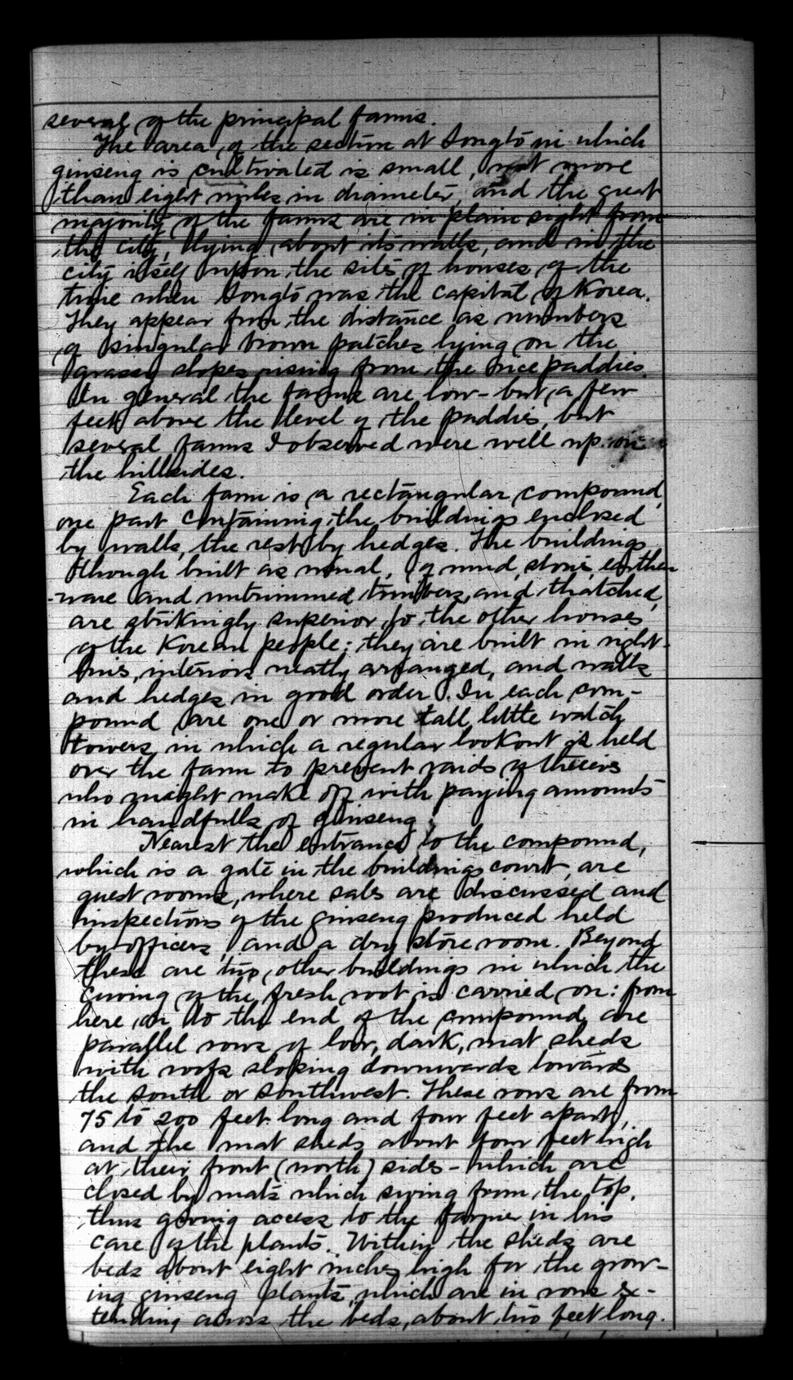 several of the principal farms.
The area of the section at Songto in which
ginseng is cultivated is small, not more
than eight miles in diameter, and the great
majority of the farms are in plain sight from
the city, lying about its walls, and in the
city itself upon the sites of houses of the
time when Songto was the capital of Korea.
They appear from the distance as numbers
of singular brown patches lying on the
grassy slopes rising from the rice paddies.
In general the farms are low - but a few
feet above the level of the paddies, but
several farms I observed were well up on
the hillsides.
Each farm is a rectangular compound,
one part containing the buildings enclosed
by walls, the rest by hedges. The buildings
though built as usual, of mud, stone, earthen
-ware and untrimmed timbers, and thatched,
are strikingly superior to the other houses
of the Korean people; they are built in right
lines, interiors neatly arranged, and walls
and hedges in good order. In each com-
pound are one or more tall little watch
towers in which a regular lookout is held
over the farm to prevent raids of thieves
who might make off with paying amounts
in handfulls of ginseng.
Nearest the entrance to the compound,
which is a gate in the buildings court, are
guest rooms, where sales are discussed and
inspections of the ginseng produced held
by officers, and a dry store room. Beyond
these are two other buildings in which the
curing of the fresh root is carried on: from
here on to the end of the compound, are
parallel rows of low, dark, mat sheds
with roofs sloping downwards towards
the South or Southwest. These rows are from
75 to 200 feet long and four feet apart,
and the mat sheds about four feet high
at their front (north) sides - which are
closed by mats which swing from the top,
thus giving access to the farmer in his
care of the plants. Within the sheds are
beds about eight inches high for the grow-
ing ginseng plants, which are in rows ex-
tending across the beds, about two feet long.